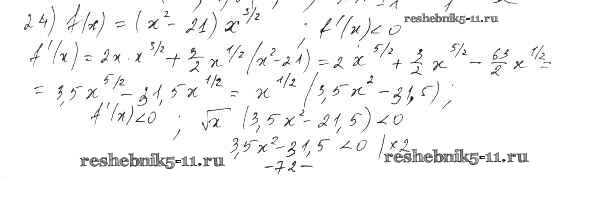 24) f(x) = (x² - 21) x^{3/2} ; f'(x) < 0
reshebnik5-11.ru
f'(x) = 2x · x^{3/2} + 3/2 x^{1/2} (x² - 21) = 2 x^{5/2} + 3/2 x^{5/2} - 63/2 x^{1/2} =
= 3,5x^{5/2} - 31,5x^{1/2} = x^{1/2} (3,5x² - 31,5) ;
f'(x) < 0 ; √x (3,5x² - 21,5) < 0
3,5x² - 31,5 < 0 | ×2
reshebnik5-11.ru reshebnik5-11.ru
-72-